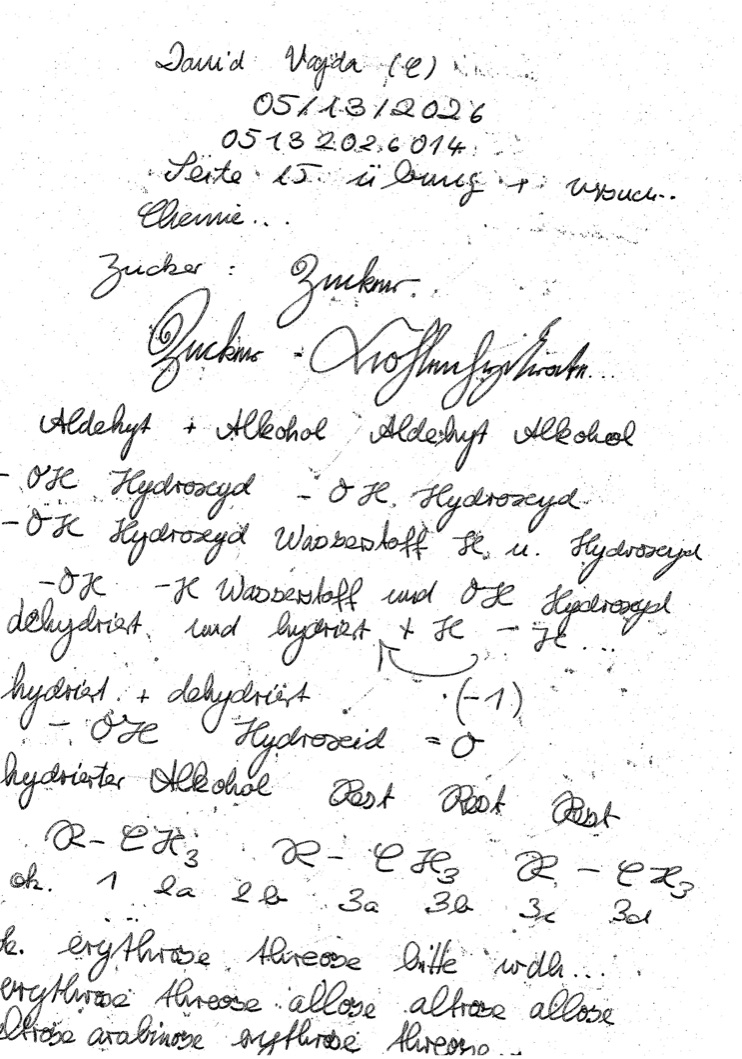 David Vajda (C)
05/13/2026
05132026014
Seite 15. übung +
Chemie...
Zucker: Zucker.
Zucker - Kohlenhydrate...
Aldehyt + Alkohol Aldehyt Alkohol
- OH Hydroxyd - OH, Hydroxyd
- OH Hydroxyd Wasserstoff H, u. Hydroxyd
- OH - H Wasserstoff und OH Hydroxyd
dehydriert, und hydriert + H - H...
hydriert + dehydriert · (-1)
- OH Hydroxeid = O
hydrierter Alkohol Rest Rest Rest
R - CH3 R - CH3 R - CH3
ok. 1 2a 2b 3a 3b 3c 3d
ok. erythrose threose bitte wdh...
erythrose threose allose altrose allose
altrose arabinose erythrose threose...